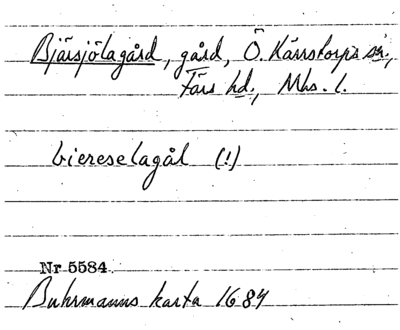 Bjärsjölagård, gård, Ö. Kärrstorps sn.,
Färs hd., Mhs. l.
biereselagål (!)
Nr 5584
Buhrmanns karta 1684